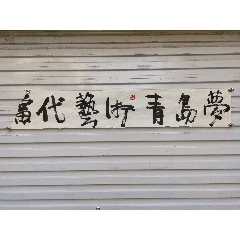 當代藝術青島夢